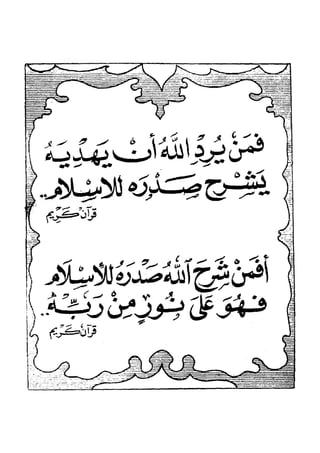 فَمَنْ يُرِدِ اللَّهُ أَنْ يَهْدِيَهُ
يَشْرَحْ صَدْرَهُ لِلإِسْلَامِ..
قرآن كريم
أَفَمَنْ شَرَحَ اللَّهُ صَدْرَهُ لِلْإِسْلَامِ
فَهُوَ عَلَى نُورٍ مِنْ رَبِّهِ..
قرآن كريم